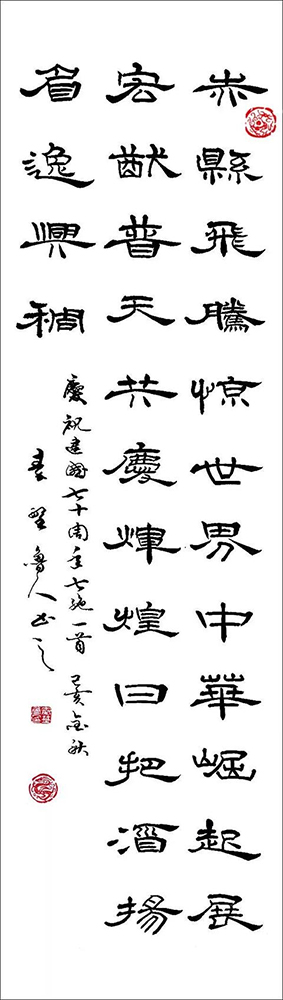 赤縣飛騰惊世界中華崛起展
宏猷普天共慶煇煌日把酒揚
眉逸興稠
慶祝建國七十周年七絕一首 己亥金秋
魯人书之